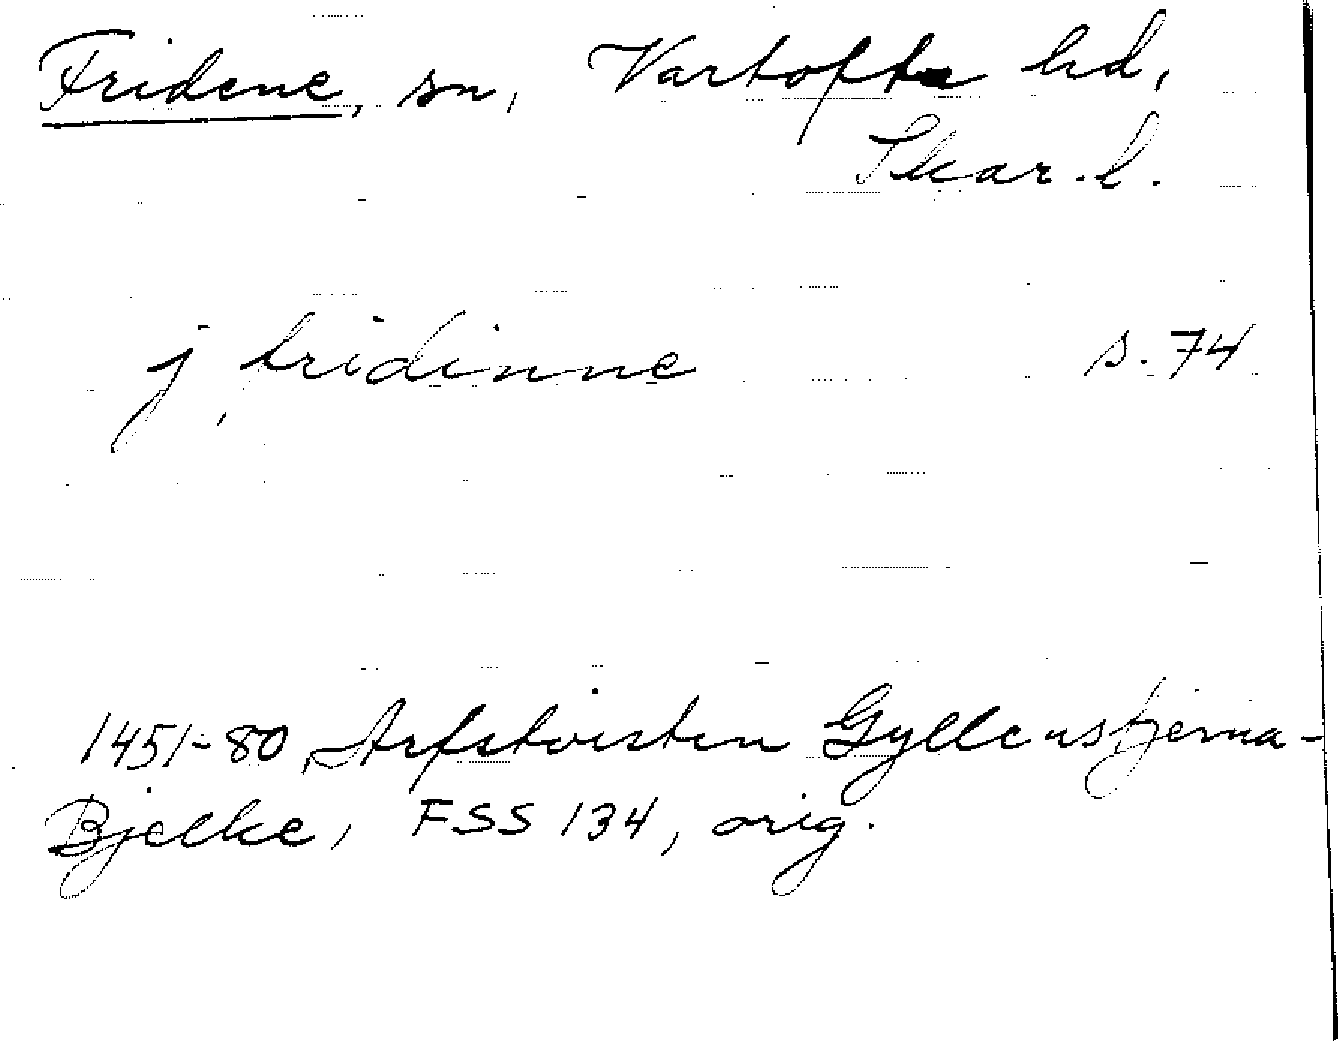 Fridene, sn, Vartofta hd,
Skar. l.
j tridinne s. 74
1451-80 Arfstvisten Gyllenstjerna-
Bjelke, FSS 134, orig.